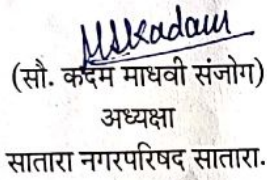 MSKadam
(सौ. कदम माधवी संजोग)
अध्यक्षा
सातारा नगरपरिषद सातारा.